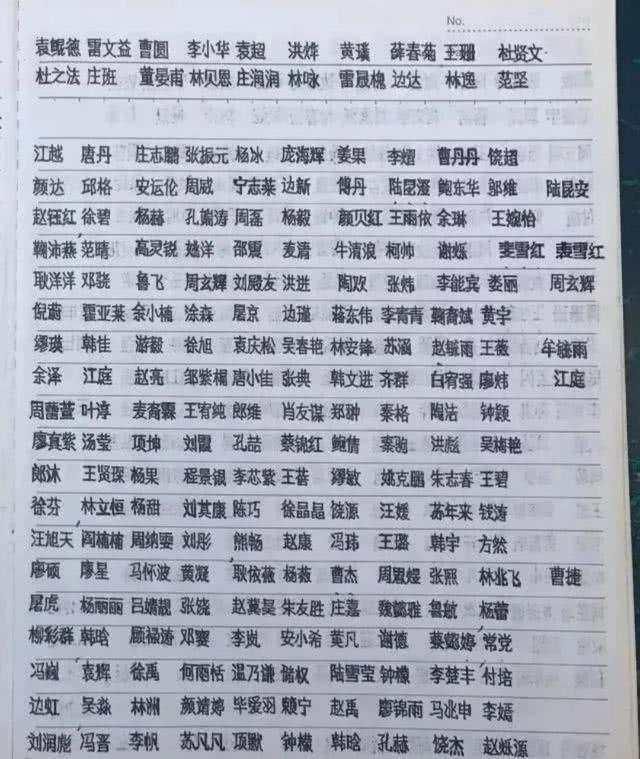 No.
袁鲲德 雷文益 曹圆 李小华 袁超 洪烨 黄瑱 薛春菊 王珊 杜贤文
杜之法 庄班 董晏甫 林贝恩 庄润润 林咏 雷晟槐 边达 林逸 范坚
江越 唐丹 庄志鹏 张振元 杨冰 庞海辉 姜果 李熠 曹丹丹 饶超
颜达 邱格 安运伦 周威 宁志莱 边新 傅丹 陆昆滢 鲍东华 邬维 陆昆安
赵钰红 徐碧 杨赫 孔娴涛 周磊 杨毅 颜贝红 王雨依 余琳 王婉怡
鞠沛燕 范晴 高灵锐 姚洋 邵震 麦清 牛清浪 柯帅 谢烁 裴雪红 裴雪红
耿洋洋 邓骁 鲁飞 周玄辉 刘殿友 洪进 陶欢 张炜 李能宾 娄丽 周玄辉
倪蔚 霍亚莱 余小楠 涂森 屠京 边瑾 蒋东伟 李青青 鞠育斌 黄宇
缪瑛 韩佳 游毅 徐旭 袁庆松 吴春艳 林安锋 苏涵 赵毓雨 王薇 牟毓雨
余泽 江庭 赵亮 邹紫楠 唐小佳 张典 韩文进 齐群 白宥强 廖炜 江庭
周蕾萱 叶淳 麦育霖 王宥纯 郎维 肖友谋 郑翀 秦格 陶洁 钟颖
廖真紫 汤莹 项坤 刘霞 孔喆 蔡锦红 鲍倩 秦驰 洪彪 吴梅艳
郎沐 王贤琛 杨果 程景银 李芯紫 王蓓 缪敏 姚克鹏 朱志春 王碧
徐芬 林立恒 杨甜 刘其康 陈巧 徐晶晶 饶源 汪媛 苏年来 钱涛
汪旭天 阎楠楠 周纳雯 刘彤 熊畅 赵康 冯玮 王璐 韩宇 方然
廖硕 廖星 马怀波 黄凝 耿依薇 杨薇 曹杰 周煜 张熙 林兆飞 曹捷
屠虎 杨丽丽 吕婧靓 张饶 赵冀昊 朱友胜 庄嘉 魏懿雅 鲁敏 杨蕾
柳彩群 韩晗 顾福涛 邓雯 李岚 安小希 莫凡 谢德 蔡懿婷 常党
冯巍 袁辉 徐禹 何雨恬 温乃谦 储权 陆雪莹 钟檬 李楚丰 付培
边虹 吴淼 林洲 颜婧婷 毕爱羽 赖宁 赵禹 廖锦雨 马兆申 李嫣
刘润彪 冯晋 李帆 苏凡凡 项默 钟檬 韩晗 孔赫 饶杰 赵烁源